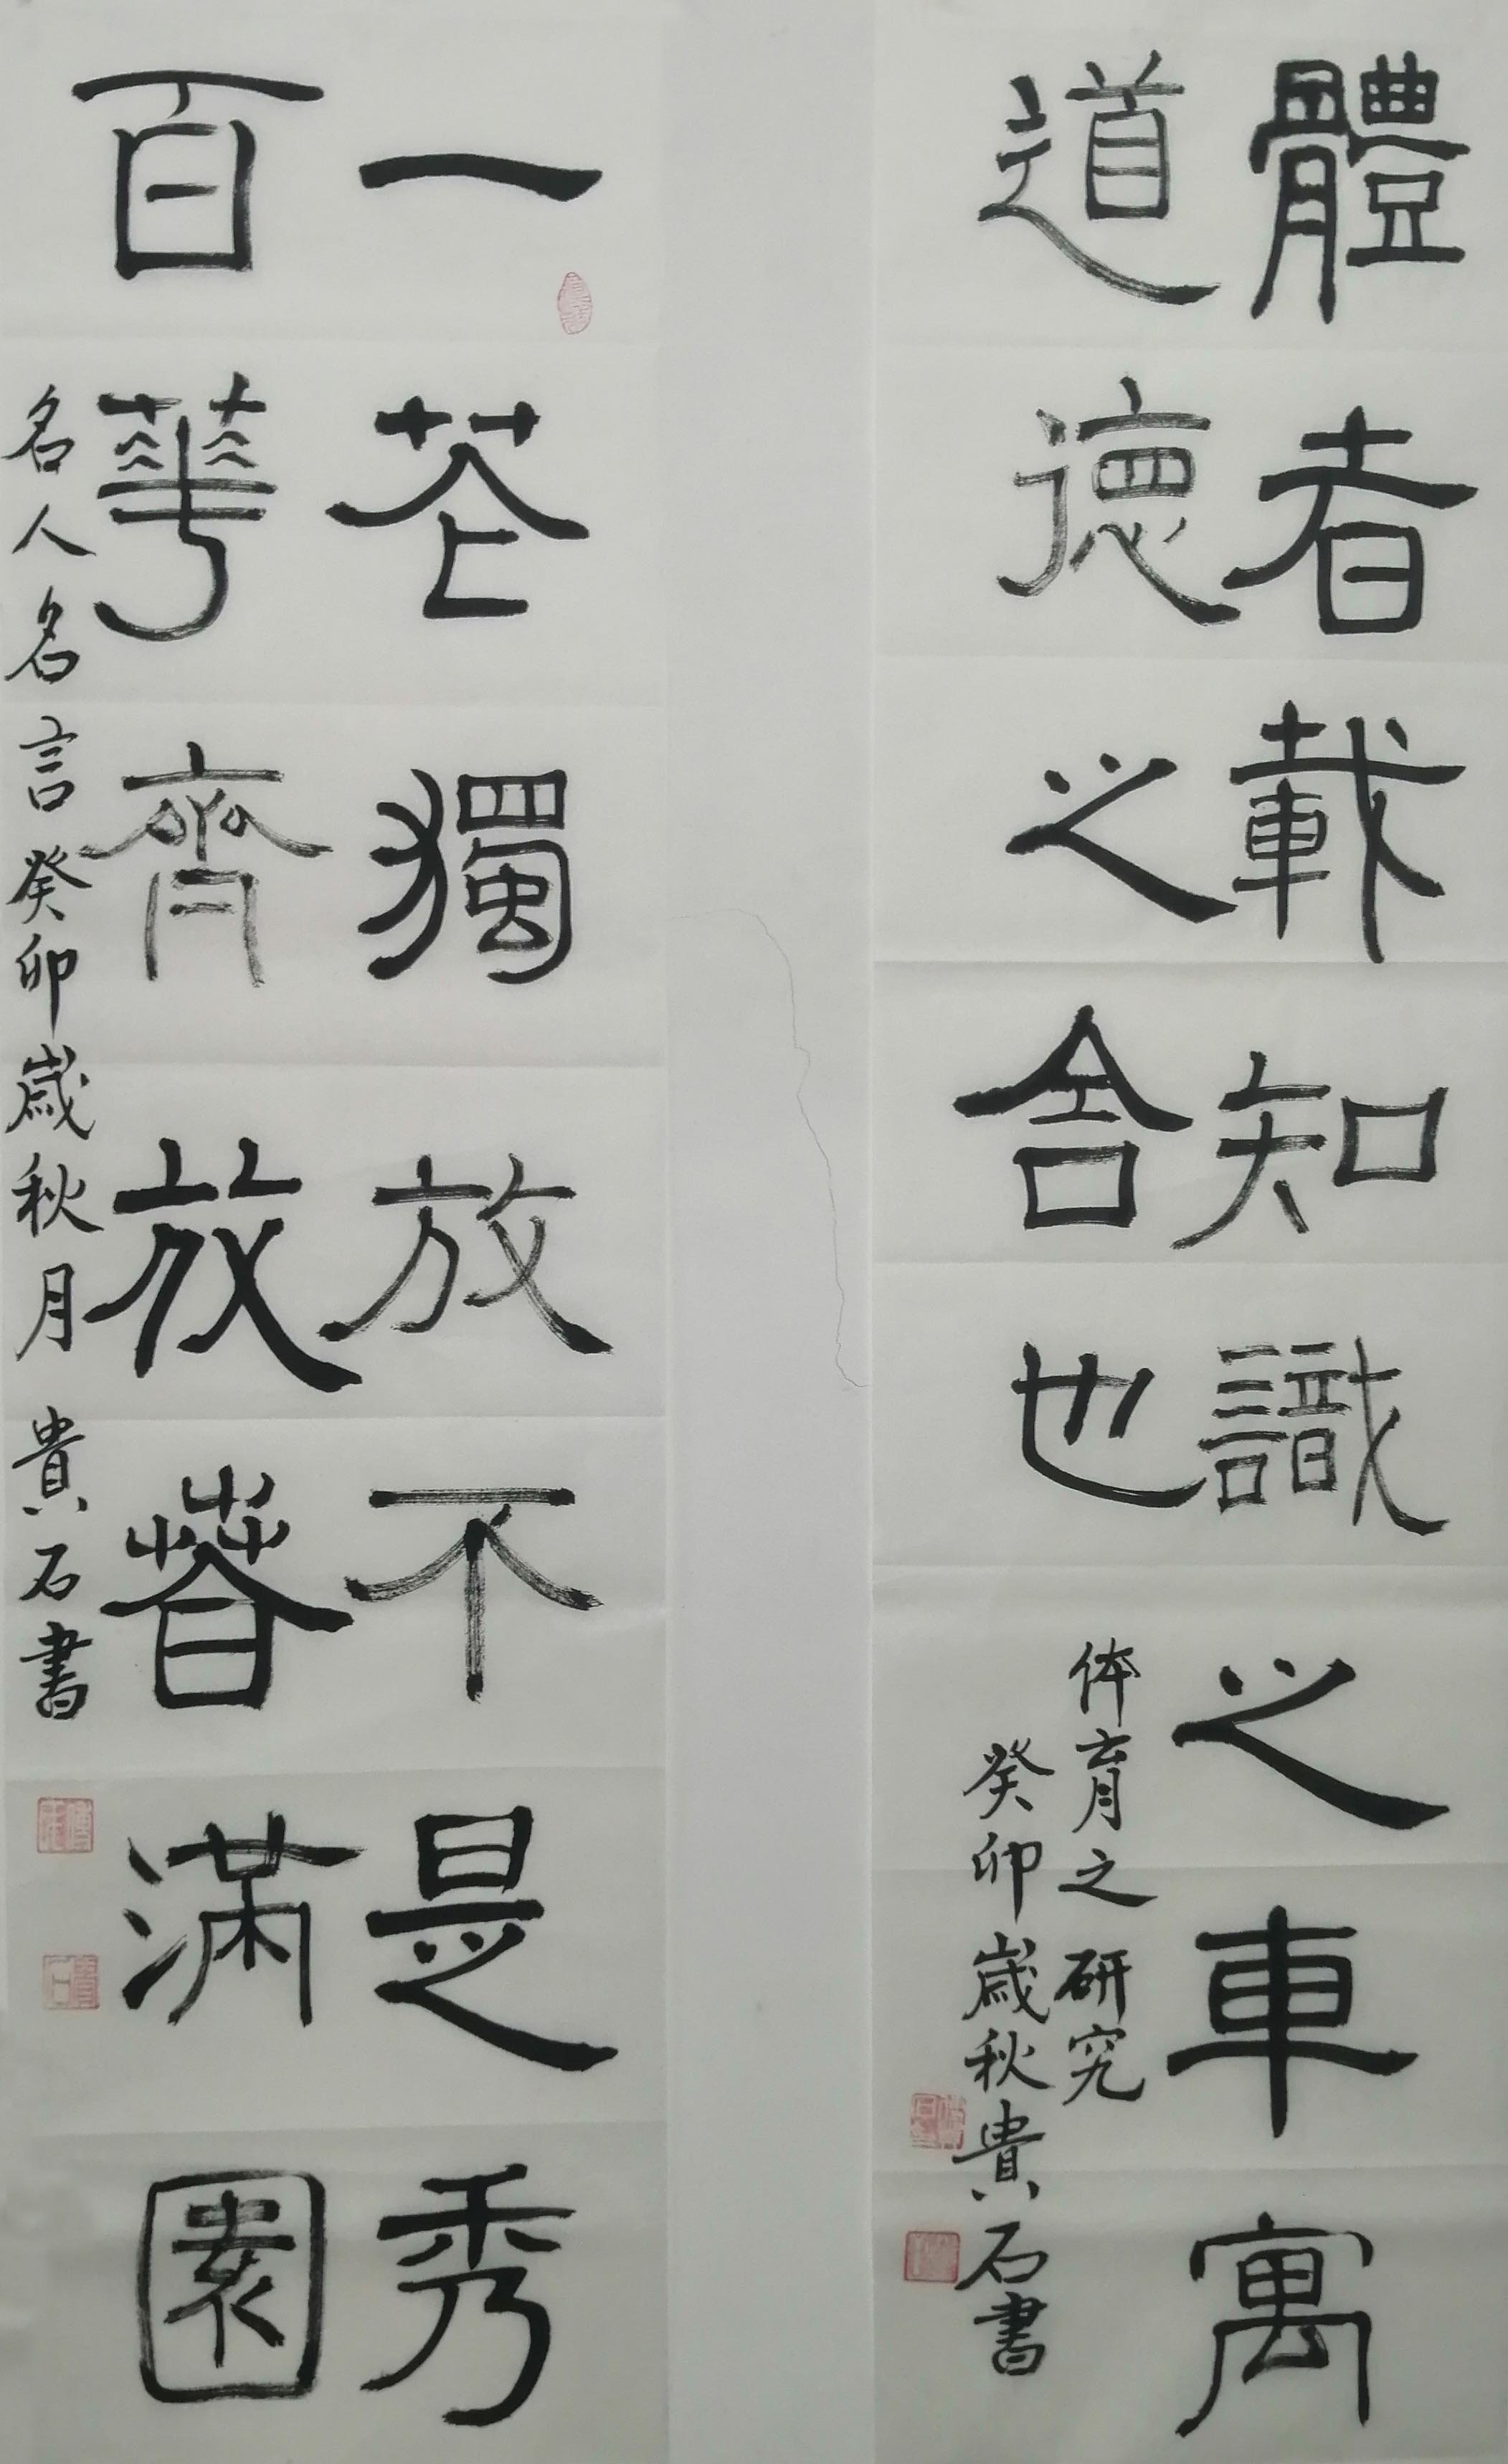 體者載知識之車寓
道德之舍也
体育之研究
癸卯歲秋貴石書
一花獨放不是秀
百華齊放春滿園
名人名言癸卯歲秋月貴石書